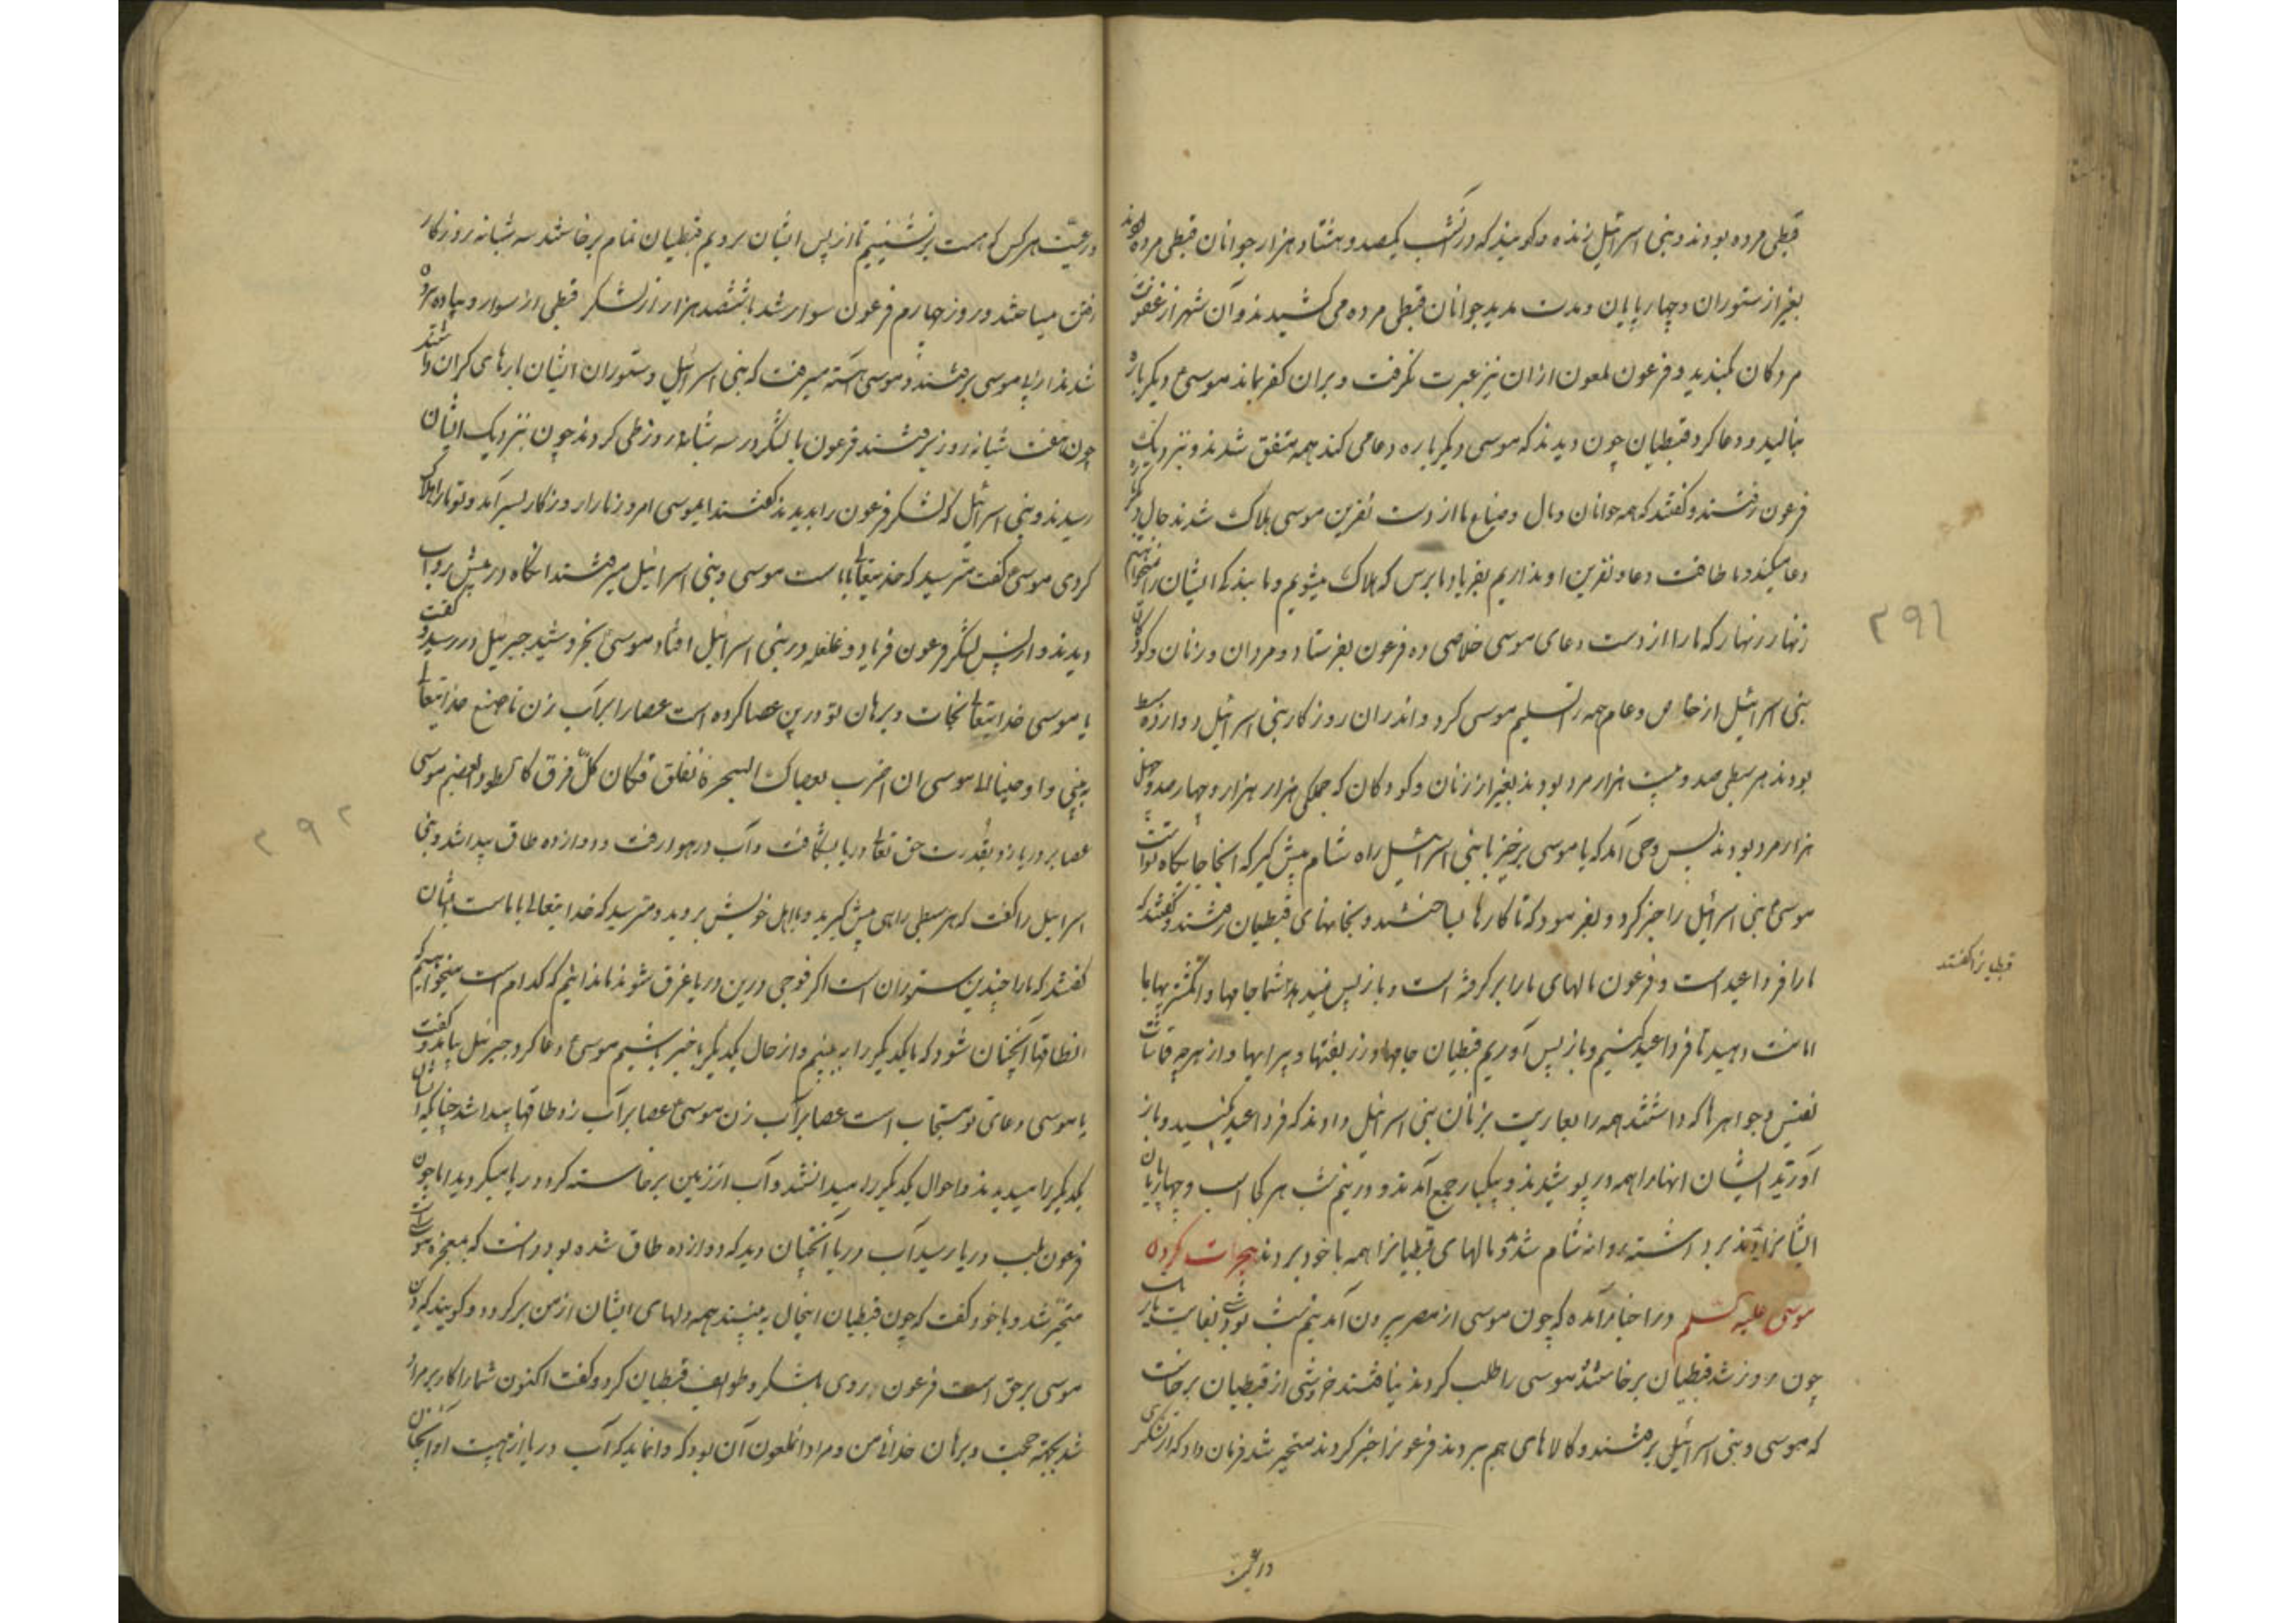 قبطی مرده بودند و بنی اسرائیل زنده و کویند که در آنشب یکصد و هشتاد هزار جوانان قبطی مرده بودند
بغیر از ستوران و چهار پایان و مدت مدید جوانان قبطی مرده می کشیدند و آن شهر از عفونت
مردکان بکندید و فرعون ملعون ازان نیز عبرت نکرفت و بران کفر بماند موسی ع دیکر باره
بنالید و دعا کرد قبطیان چون دیدند که موسی دیکر باره دعا می کند همه متفق شدند و بنزدیک
فرعون رفتند و کفتند که همه جوانان و مال و ضیاع ما از دست نفرین موسی هلاک شدند حال دیکر
دعا میکند و ما طاقت دعا و نفرین او نداریم بفریاد ما برس که هلاک میشویم و ما بندکی ایشان را نمیخواهیم
زنهار زنهار که ما را از دست دعای موسی خلاصی ده فرعون بفرستاد و مردان و زنان و کودکان
بنی اسرائیل از خاص و عام همه را تسلیم موسی کرد و اندران روزکار بنی اسرائیل دوازده سبط
بودند هر سبطی صد و بیست هزار مرد بودند بغیر از زنان و کودکان که جملکی هزار هزار و چهار صد و چهل
هزار مرد بودند پس وحی آمد که یا موسی برخیز با بنی اسرائیل راه شام پیش کیر که آنجا جایکاه تو است
موسی ع بنی اسرائیل را خبر کرد و بفرمود که تا کارها بساختند و بخانهای قبطیان رفتند و کفتند که
ما را فردا عید است و فرعون مالهای ما را بر کرفته است و باز پس نمیدهد شما جامها و انکشتریها بما
امانت دهید تا فردا عید کنیم و باز پس آوریم قبطیان جامها و زربفتها و پیرایها و از هر چه قماشات
نفیس و جواهرها که داشتند همه را بعاریت بزنان بنی اسرائیل دادند که فردا عید کنید و باز
آورید ایشان انها را همه در پوشیدند و بیکبار جمع آمدند و در نیم شب هر کجا اسب و چهارپایان
ایشانرا بردند برداشته روانه شام شدند و مالهای قبطیانرا همه با خود بردند هجرت کردن
موسی علیه السلم در اخبار آمده که چون موسی از مصر بیرون آمد نیم شب بود شبی بغایت تاریک
چون روز شد قبطیان برخاستند موسی را طلب کردند نیافتند خروشی از قبطیان برخاست
که موسی و بنی اسرائیل برفتند و کالاهای هم ببردند فرعونرا خبر کردند متحیر شد فرمان داد که از لشکری
و رعیت
قبطیانرا کفتند
۲۹۱
و رعیت هر کس که هست برنشینیم تا از پس ایشان برویم قبطیان تمام برخاستند سه شبانه روز کار
رفتن میساختند و روز چهارم فرعون سوار شد با ششصد هزار از لشکر قبطی از سوار و پیاده برون
شدند از پی موسی برفتند و موسی آهسته میرفت که بنی اسرائیل و ستوران ایشان بارهای کران داشتند
چون هفت شبانه روز برفتند فرعون با لشکر در سه شبانه روز طی کردند چون بنزدیک ایشان
رسیدند و بنی اسرائیل که لشکر فرعون را بدیدند کفتند ایموسی امروز ما را روزکار بسر آمد و تو ما را هلاک
کردی موسی ع کفت مترسید که خدایتعالی با ماست موسی و بنی اسرائیل میرفتند انکاه در پیش رود آب
دیدند و از پس لشکر فرعون فریاد و غلغله در بنی اسرائیل افتاد موسی ع بخروشید جبرئیل در رسید و کفت
یا موسی خدایتعالی نجات و برهان تو درین عصا کرده است عصا را بر آب زن تا صنع خدایتعالی
به بینی و اوحینا الی موسی ان اضرب بعصاک البحر فانفلق فکان کل فرق کالطود العظیم موسی
عصا بر دریا زد بقدرت حق تعالی دریا بشکافت و آب در هوا رفت و دوازده طاق پیدا شد و بنی
اسرائیل را کفت که هر سبطی راهی پیش کیرید و با اهل خویش بروید و مترسید که خدایتعالی با ماست ایشان
کفتند که ما را چندین ستوران است اکر فوجی درین دریا غرق شوند ما ندانیم که کدام است میخواهیم که
این طاقها آنچنان شود که یکدیکر را به بینیم و از حال یکدیکر با خبر باشیم موسی ع دعا کرد جبرئیل بیامد و کفت
یا موسی دعای تو مستجاب است عصا بر آب زن موسی ع عصا بر آب زد طاقها پیدا شد چنانکه ایشان
یکدیکر را میدیدند و احوال یکدیکر را میدانستند و آب از زمین برخاسته کرد دریا میکردید اما چون
فرعون بلب دریا رسید آب دریا آنچنان دید که دوازده طاق شده بود دانست که معجزه موسی است
متحیر شد و با خود کفت که چون قبطیان اینحال به بینند همه دلهای ایشان از من برکردد و کویند که دین
موسی برحق است فرعون روی بلشکر و طوایف قبطیان کرد و کفت اکنون شما را کار بر مراد
شد بجهة حجت و برهان خدائی من و مراد انملعون آن بود که وا نماید که آب دریا از هیبت او آنچنان
۲۹۲